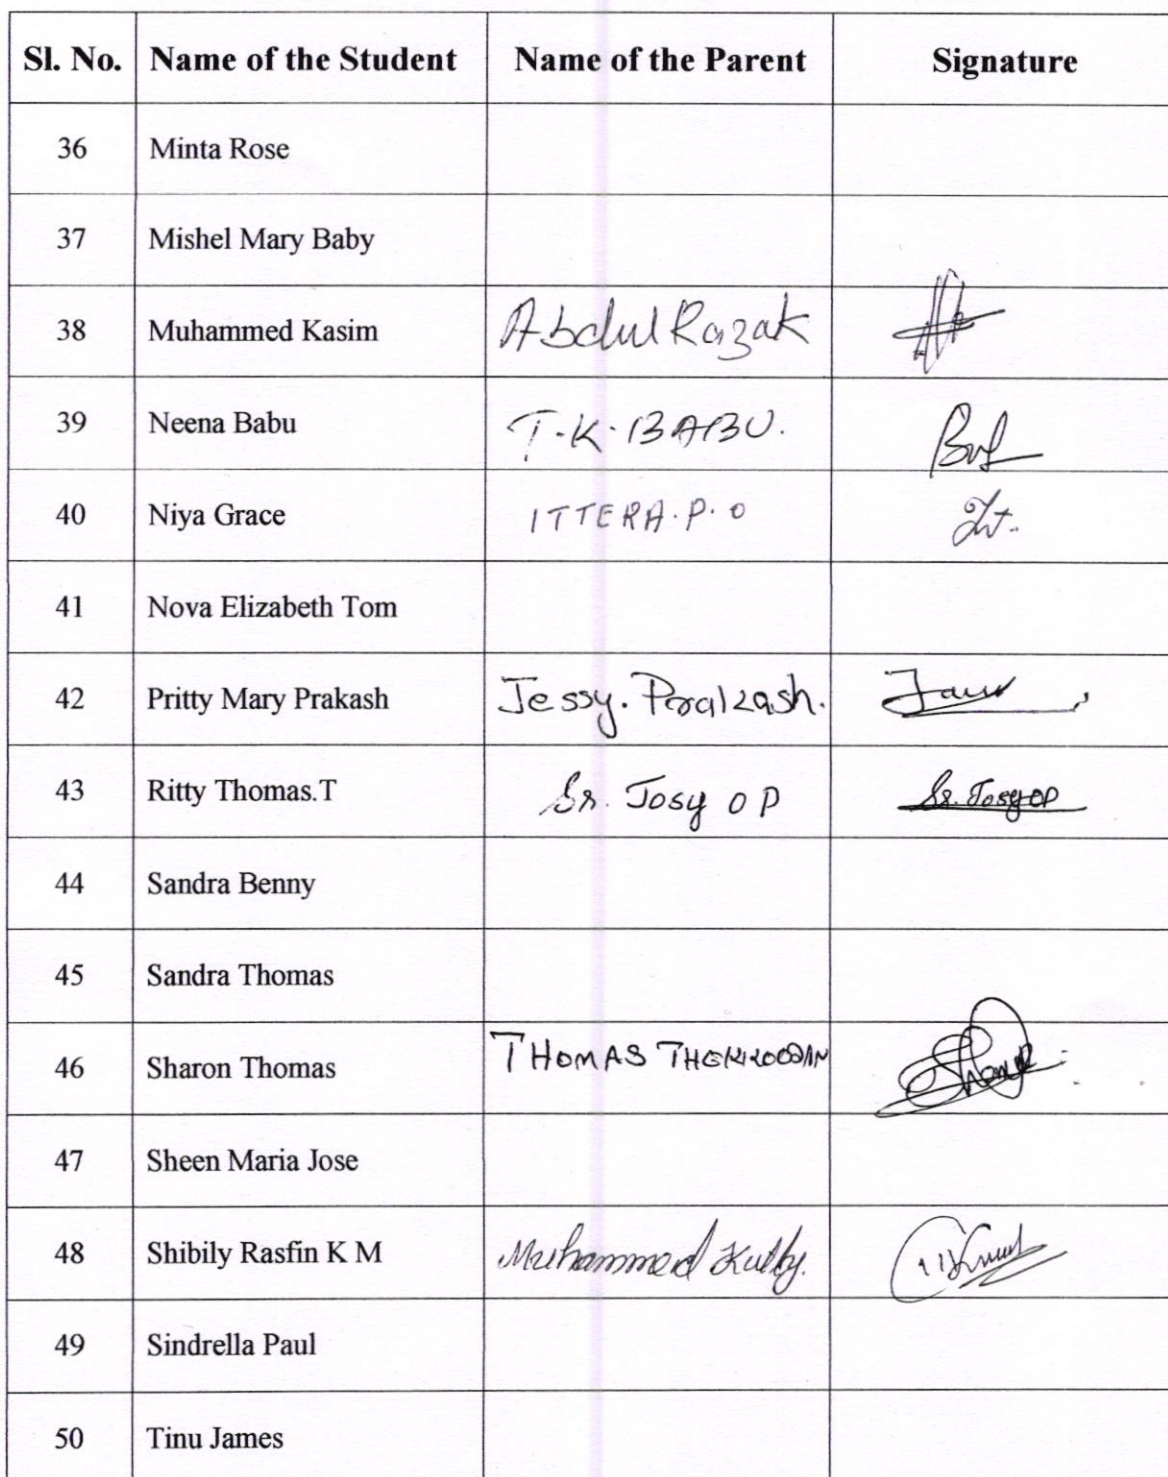 Sl. No. Name of the Student Name of the Parent Signature
36 Minta Rose
37 Mishel Mary Baby
38 Muhammed Kasim Abdul Razak
39 Neena Babu T.K.BABU.
40 Niya Grace ITTERA.P.O
41 Nova Elizabeth Tom
42 Pritty Mary Prakash Jessy.Prakash.
43 Ritty Thomas.T Sr. Josy OP Sr. Josy OP
44 Sandra Benny
45 Sandra Thomas
46 Sharon Thomas THOMAS
47 Sheen Maria Jose
48 Shibily Rasfin K M Muhammed Kutty.
49 Sindrella Paul
50 Tinu James